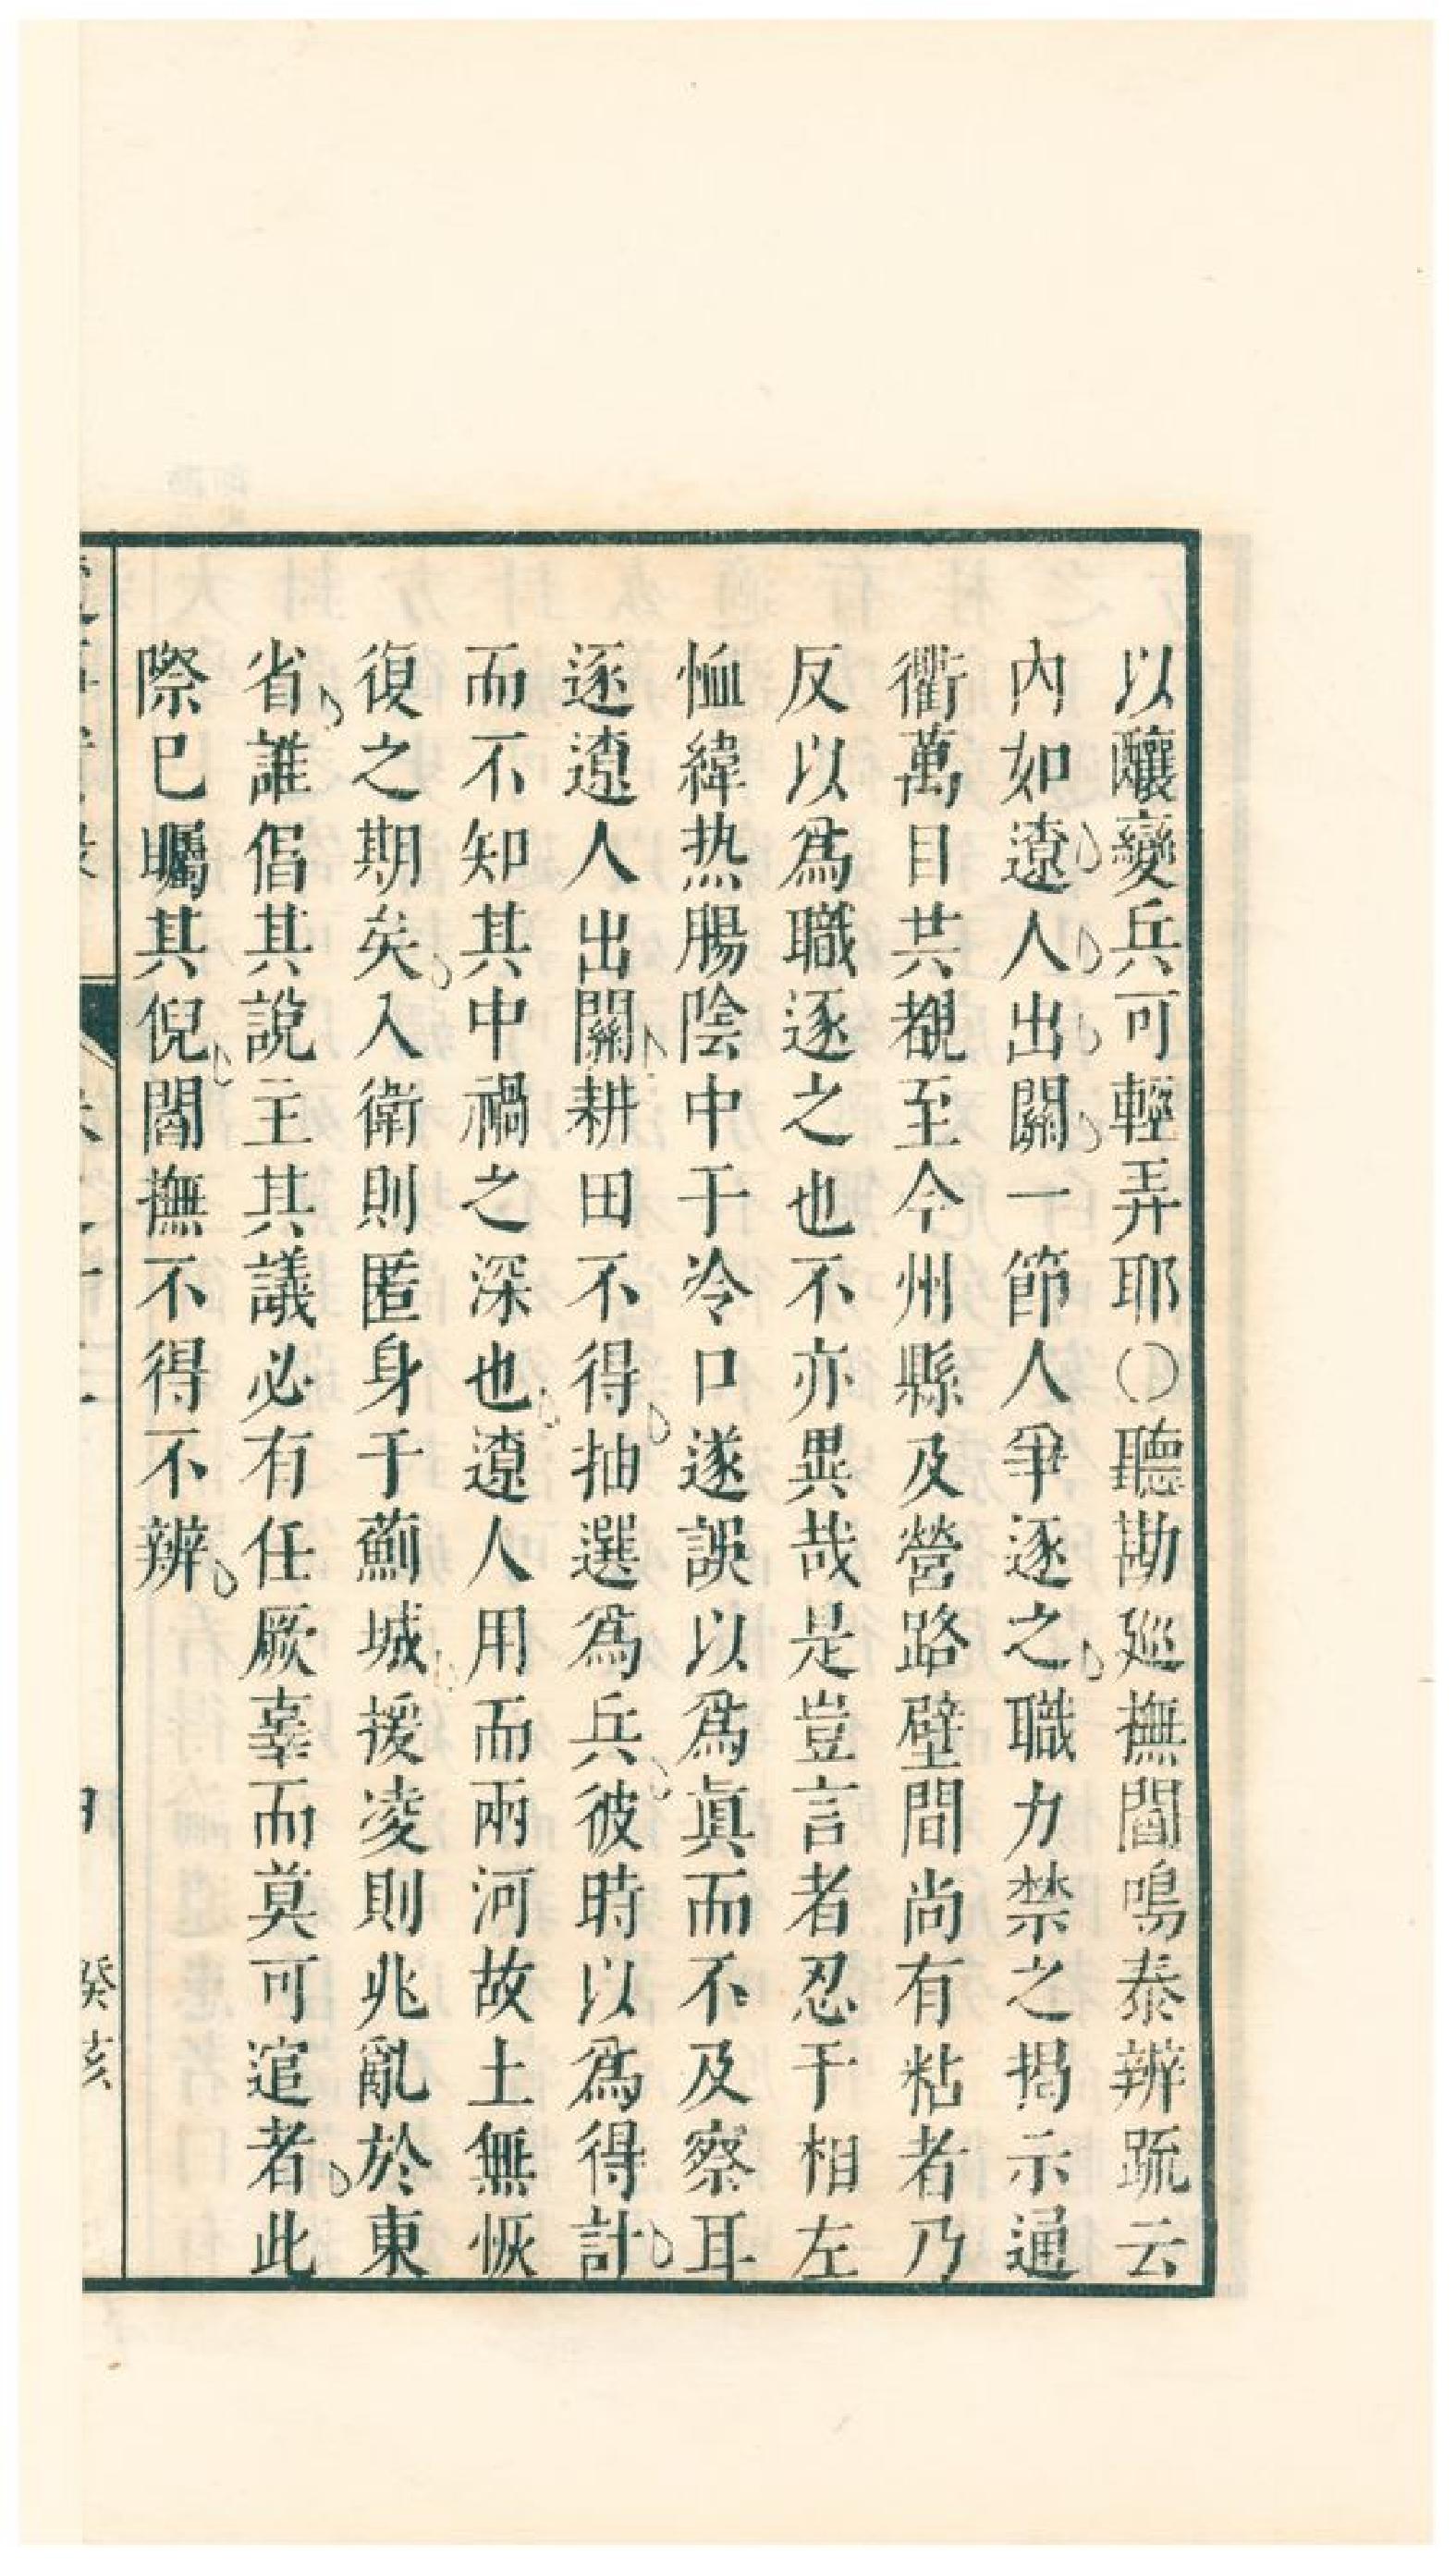 以釀變兵可輕弄耶〇聽勘廵撫閻鳴泰辨疏云
內如遼人出關一節人爭逐之職力禁之揭示通
衢萬目共覩至今州縣及營路壁間尚有粘者乃
反以爲職逐之也不亦異哉是豈言者忍于相左
恤緯热腸陰中于冷口遂誤以爲眞而不及察耳
逐遼人出關耕田不得抽選爲兵彼時以爲得計
而不知其中禍之深也遼人用而兩河故土無恢
復之期矣入衛則匿身于薊城援凌則兆亂於東
省誰倡其說主其議必有任厥辜而莫可逭者此
際已矚其倪閻撫不得不辨
癸亥